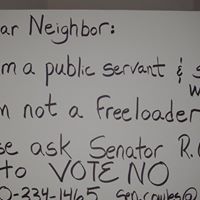 ar Neighbor:
m a public servant & s
w
m not a Freeloader
se ask Senator R.C
to VOTE NO
0-334-1465 sen.cowles@